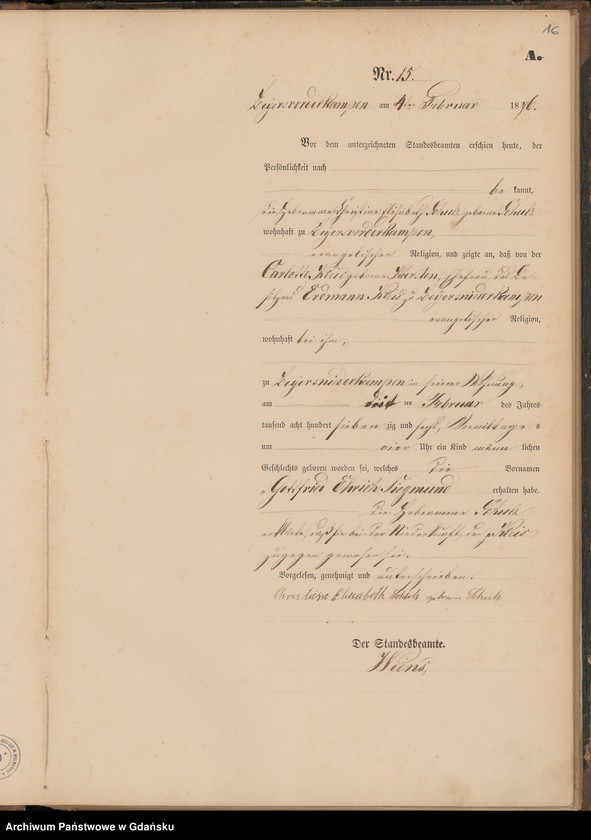 16
A.
Nr. 15.
Zeyersvorderkampen am 4ten Februar 1876.
Vor dem unterzeichneten Standesbeamten erschien heute, der
Persönlichkeit nach
be kannt,
die Hebeamme Christine Elisabeth Schulz geborne Schulz
wohnhaft zu Zeyersvorderkampen,
evangelischer Religion, und zeigte an, daß von der
Kleis geborne Karsten, Ehefrau des Be-
sitzers Erdmann Kleis zu Zeyersniederkampen
evangelischer Religion,
wohnhaft bei ihm,
zu Zeyersniederkampen in seiner Wohnung,
am ten Februar des Jahres
tausend acht hundert sieben zig und sechs, Vormittags
um vier Uhr ein Kind männ lichen
Geschlechts geboren worden sei, welches die Vornamen
Gottfried Ehrich Siegmund erhalten habe.
Die Hebeamme Schulz
erklärte, daß sie bei der Niederkunft der Kleis
zugegen gewesen sei.
Vorgelesen, genehmigt und unterschrieben.
Christine Elisabeth Schulz geborne Schulz
Der Standesbeamte.
Wiens,
Archiwum Państwowe w Gdańsku